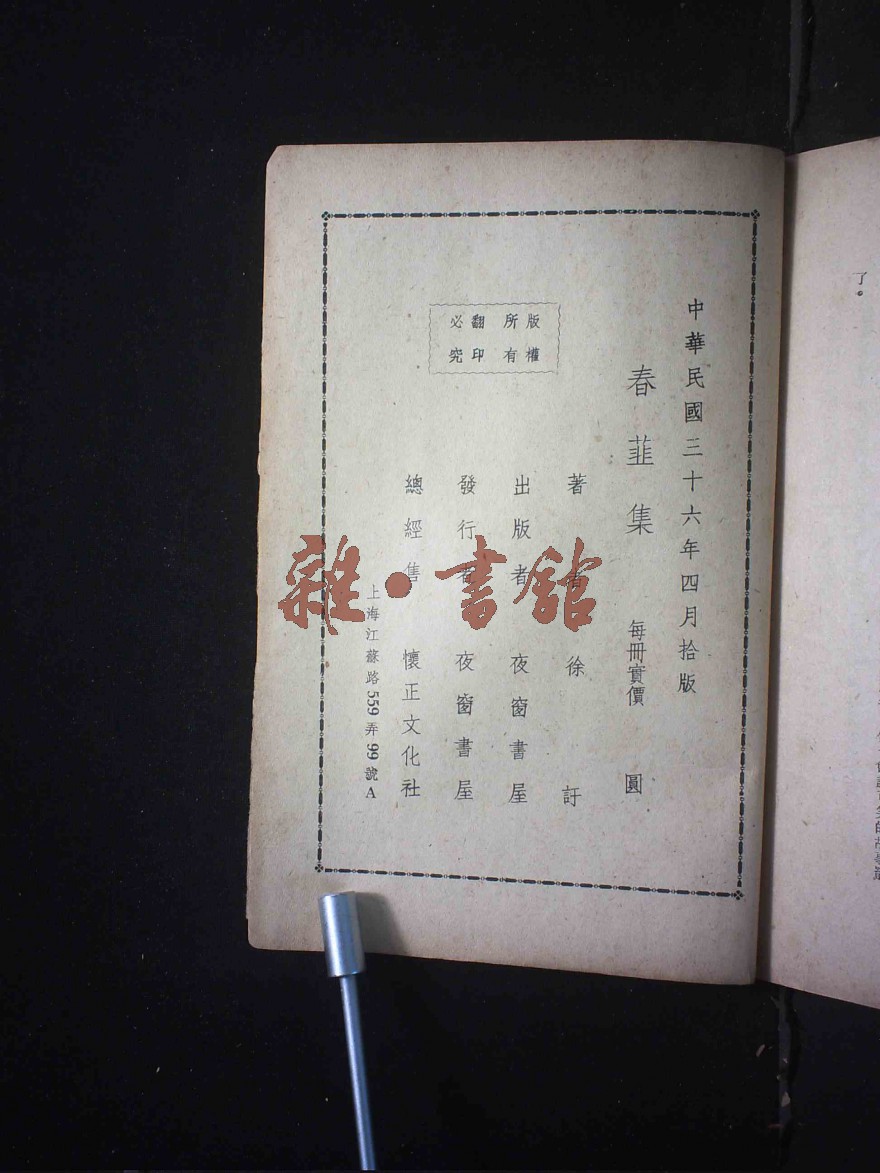 了。
中華民國三十六年四月拾版
春韮集 每冊實價 圓
著者 徐訏
出版者 夜窗書屋
發行者 夜窗書屋
總經售 懷正文化社
上海江蘇路559弄99號A
版權
所有
翻印
必究
雜·書館